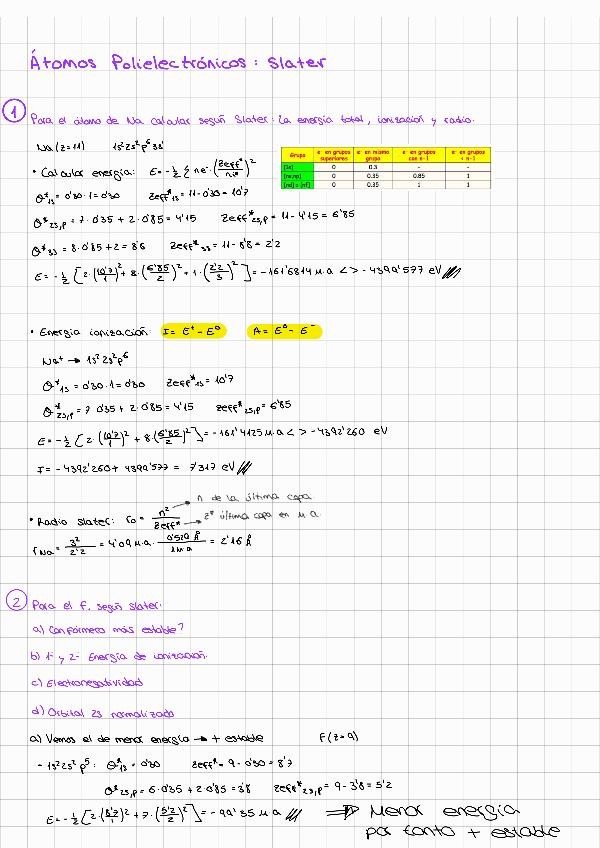 Átomos Polielectrónicos: Slater
1 Para el átomo de Na calcular según Slater: La energía total, ionización y radio.
Na (z=11) 1s² 2s² p⁶ 3s¹
• Calcular energía: E = -½ ∑ ne⁻ (Zeff*/n*)²
Grupo | e⁻ en grupos superiores | e⁻ en mismo grupo | e⁻ en grupos con n-1 | e⁻ en grupos < n-1
[1s] | 0 | 0.3 | - | -
[ns,np] | 0 | 0.35 | 0.85 | 1
[nd] o [nf] | 0 | 0.35 | 1 | 1
θ*1s = 0'30·1 = 0'30 Zeff*1s = 11-0'30 = 10'7
θ*2s,p = 7·0'35 + 2·0'85 = 4'15 Zeff*2s,p = 11-4'15 = 6'85
θ*3s = 8·0'85+2 = 8'8 Zeff*3s = 11-8'8 = 2'2
E = -½ [2·(10'7/1)² + 8·(6'85/2)² + 1·(2'2/3)²] = -161'6814 μ.a <> -4399'577 eV
• Energía ionización: I = E⁺ - E⁰ A = E⁰ - E⁻
Na⁺ → 1s² 2s² p⁶
θ*1s = 0'30·1 = 0'30 Zeff*1s = 10'7
θ*2s,p = 7·0'35 + 2·0'85 = 4'15 Zeff*2s,p = 6'85
E = -½ [2·(10'7/1)² + 8·(6'85/2)²] = -161'4125 μ.a <> -4392'260 eV
I = -4392'260 + 4399'577 = 7'317 eV
• Radio Slater: r₀ = n²/Zeff* → n de la última capa.
→ z* última capa en μ a.
rNa = 3²/2'2 = 4'09 μ.a. · 0'529 Å/1 μ.a = 2'16 Å
2 Para el F, según Slater:
a) Confórmero más estable?
b) 1ª y 2ª Energía de ionización.
c) Electronegatividad
d) Orbital 2s normalizado
a) Vemos el de menor energía → + estable F (z=9)
- 1s² 2s² p⁵: θ*1s = 0'30 Zeff* = 9-0'30 = 8'7
θ*2s,p = 6·0'35 + 2·0'85 = 3'8 Zeff*2s,p = 9-3'8 = 5'2
E = -½ [2·(8'7/1)² + 7·(5'2/2)²] = -99'35 μ.a ⇒ Menor energía
por tanto + estable